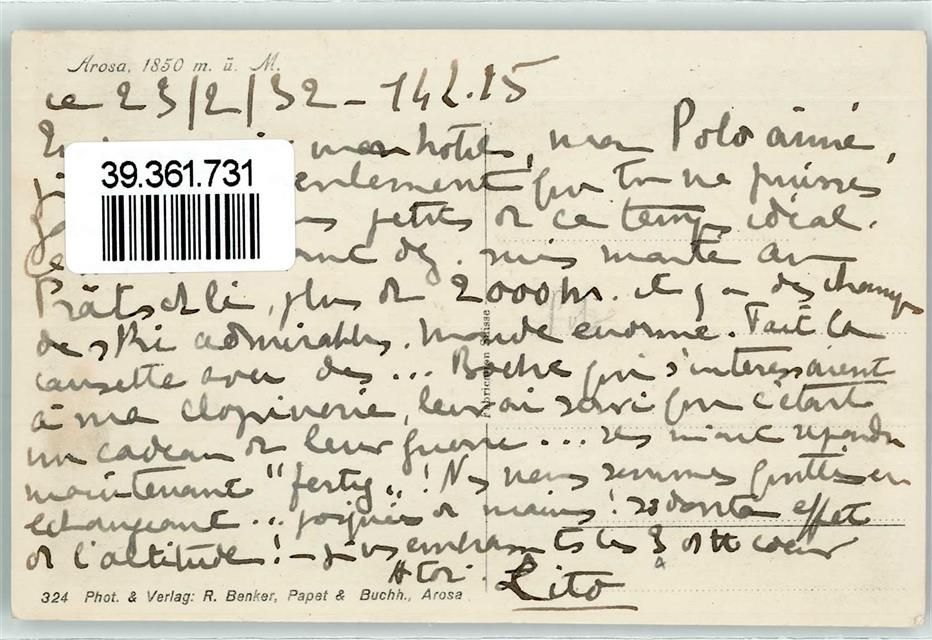 Arosa, 1850 m. ü. M.
ce 23/2/32 - 14h.15
mon hotel, mon Polo aimé,
seulement que tu ne puisses
petits de ce temps idéal.
suis monté au
Prätschli, plus de 2000 m. il y a des champs
de ski admirables. Monde énorme. Fait la
causette avec des ... Boches qui s'intéressaient
à ma clopinerie, leur ai servi que c'était
un cadeau de leur guerre ... ils m'ont répondu
maintenant "fertig"! Ns nous sommes quittés en
échangeant ... poignées de mains! effet
de l'altitude! - je vs embrasse ts les 3 de tt coeur
Lito
Fabrication Suisse
324 Phot. & Verlag: R. Benker, Papet & Buchh., Arosa
39.361.731